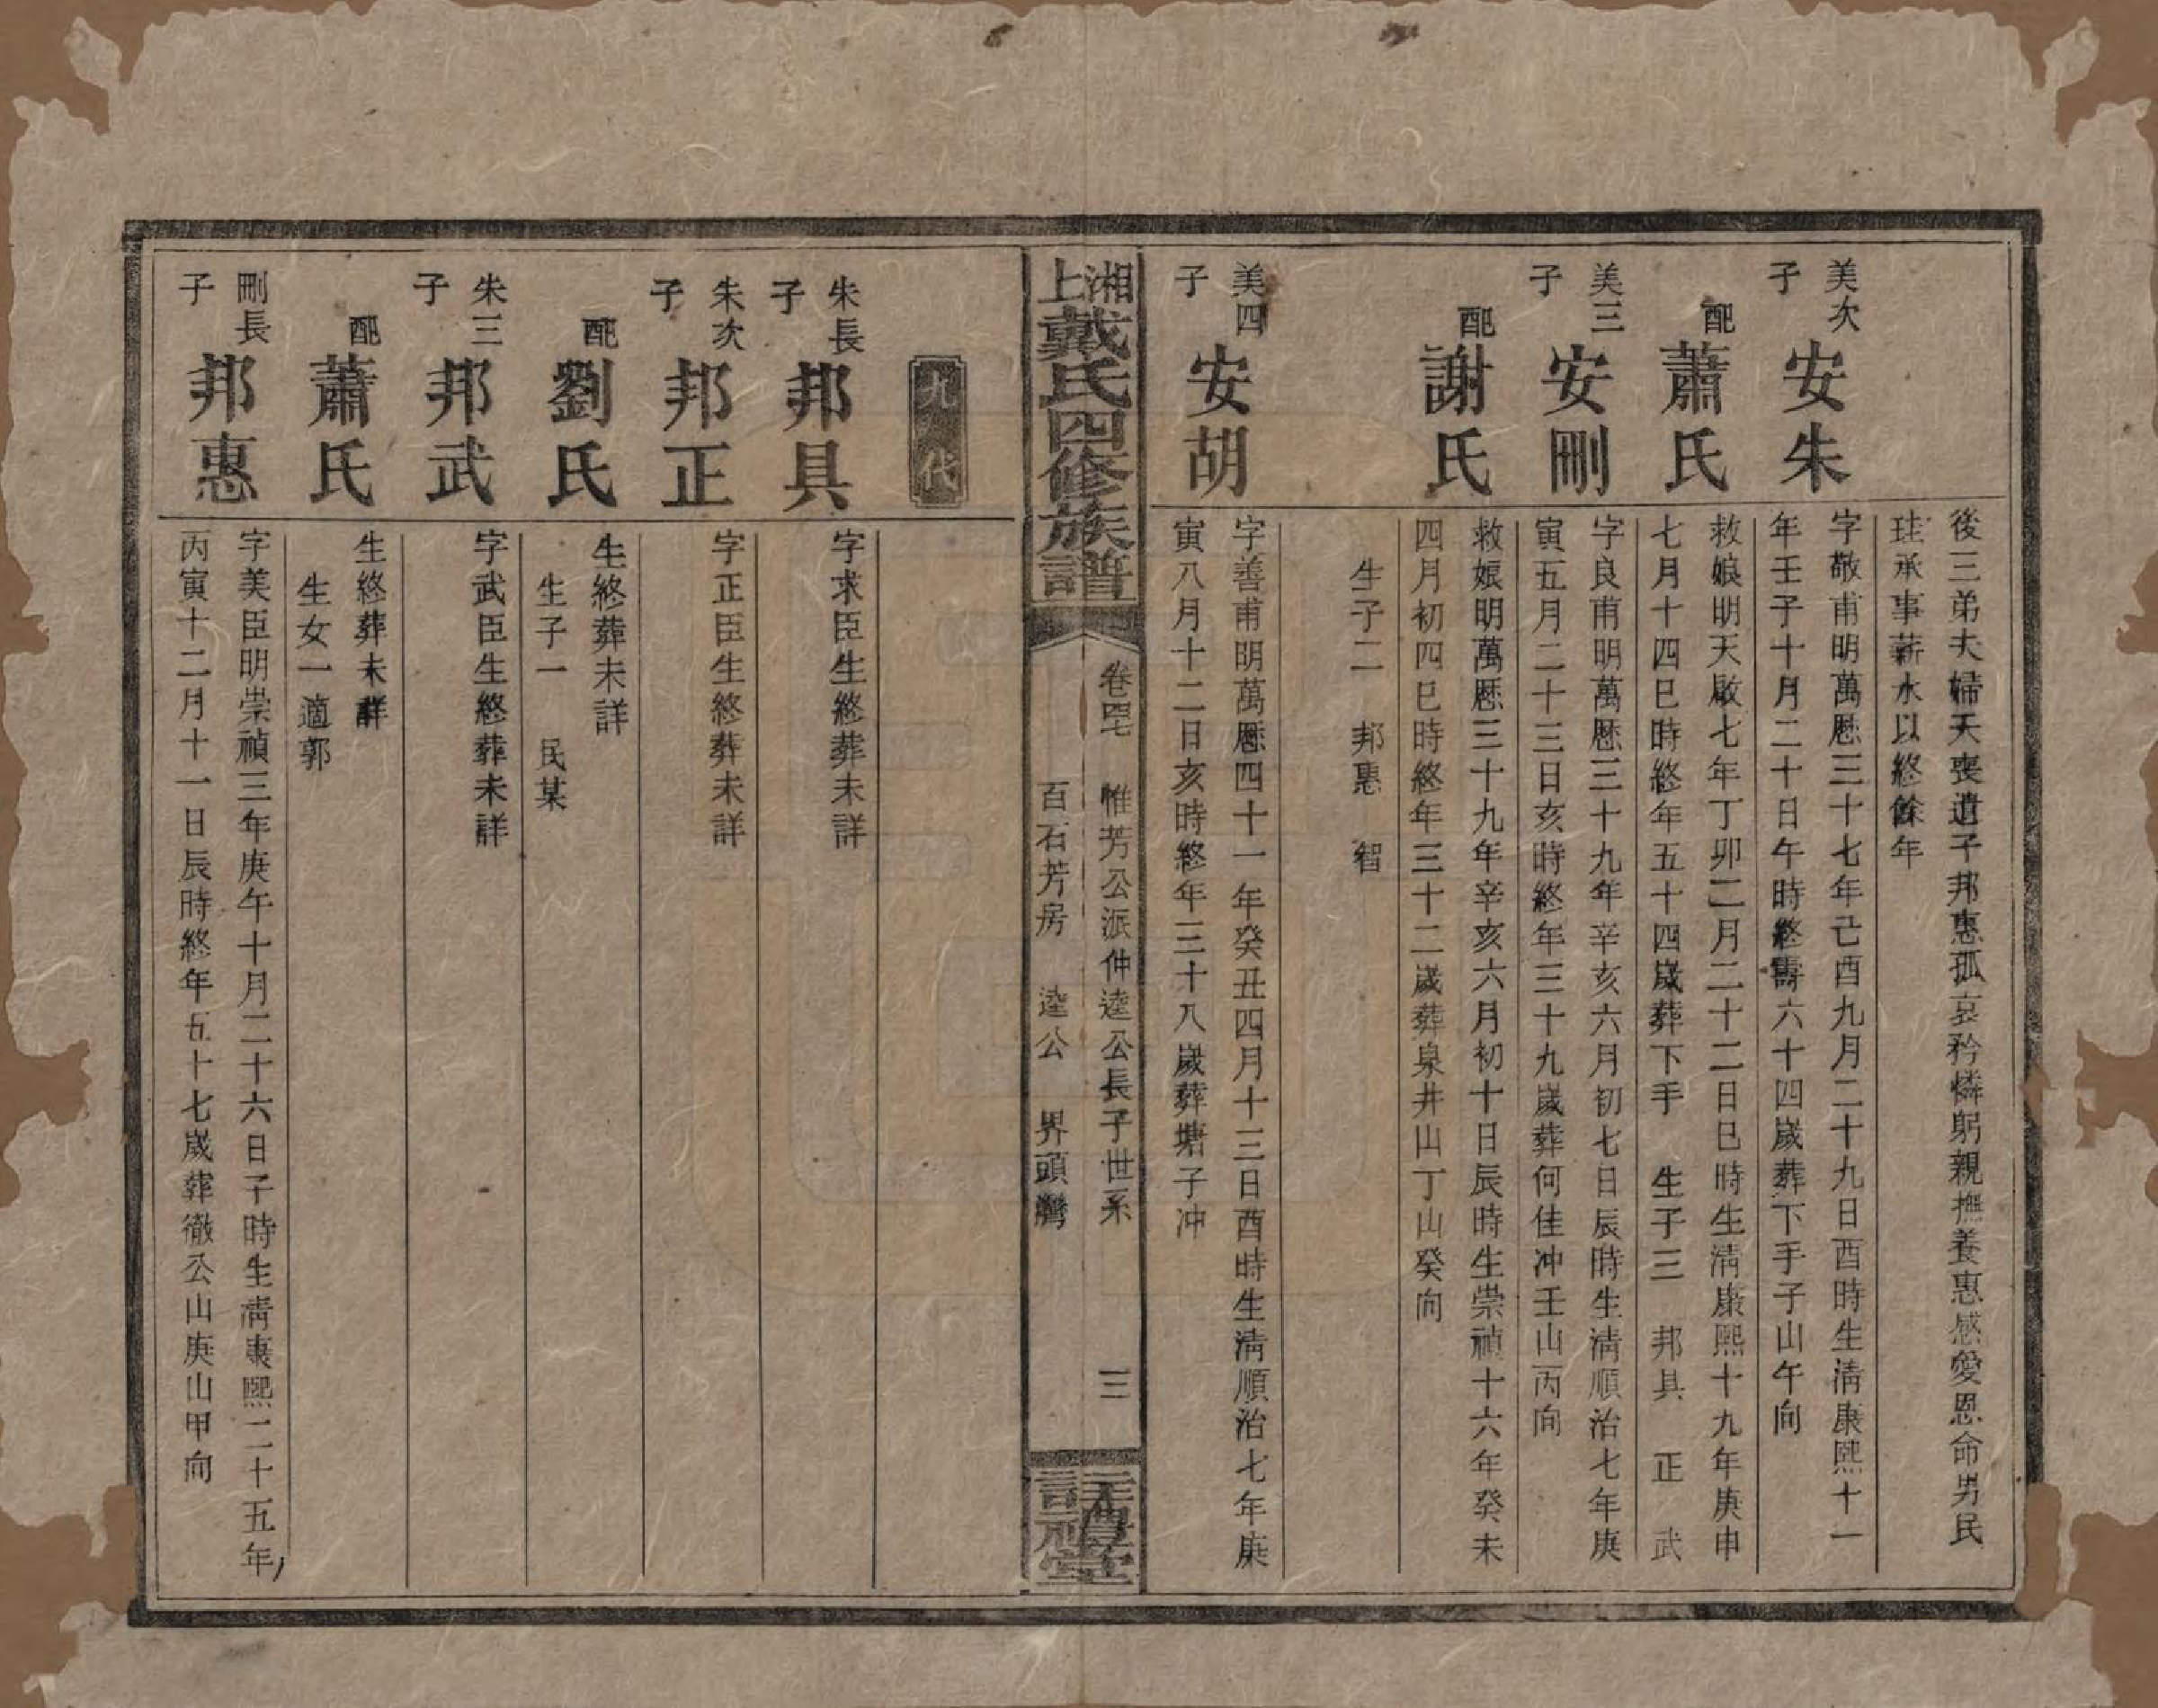 後三弟夫婦夭喪遺子邦惠孤哀矜憐躬親撫養惠感愛恩命男民
珪承事薪水以終餘年
美次子
安朱
字敬甫明萬厯三十七年己酉九月二十九日酉時生淸康熙十一
年壬子十月二十日午時終壽六十四歲葬下手子山午向
配
蕭氏
救娘明天啟七年丁卯二月二十二日巳時生淸康熙十九年庚申
七月十四巳時終年五十四歲葬下手 生子三 邦具 正 武
美三子
安剛
字良甫明萬厯三十九年辛亥六月初七日辰時生淸順治七年庚
寅五月二十三日亥時終年三十九歲葬何佳冲壬山丙向
配
謝氏
救娘明萬厯三十九年辛亥六月初十日辰時生崇禎十六年癸未
四月初四巳時終年三十二歲葬泉井山丁山癸向
生子二 邦惠 智
美四子
安胡
字善甫明萬厯四十一年癸丑四月十三日酉時生淸順治七年庚
寅八月十二日亥時終年三十八歲葬塘子冲
湘上戴氏四修族譜
卷四七 惟芳公派仲逵公長子世系 三
百石芳房 逵公 界頭灣
註禮堂
九代
朱長子
邦具
字求臣生終葬未詳
朱次子
邦正
字正臣生終葬未詳
配
劉氏
生終葬未詳
生子一 民某
朱三子
邦武
字武臣生終葬未詳
配
蕭氏
生終葬未詳
生女一適郭
剛長子
邦惠
字美臣明崇禎三年庚午十月二十六日子時生淸康熙二十五年
丙寅十二月十一日辰時終年五十七歲葬徹公山庚山甲向